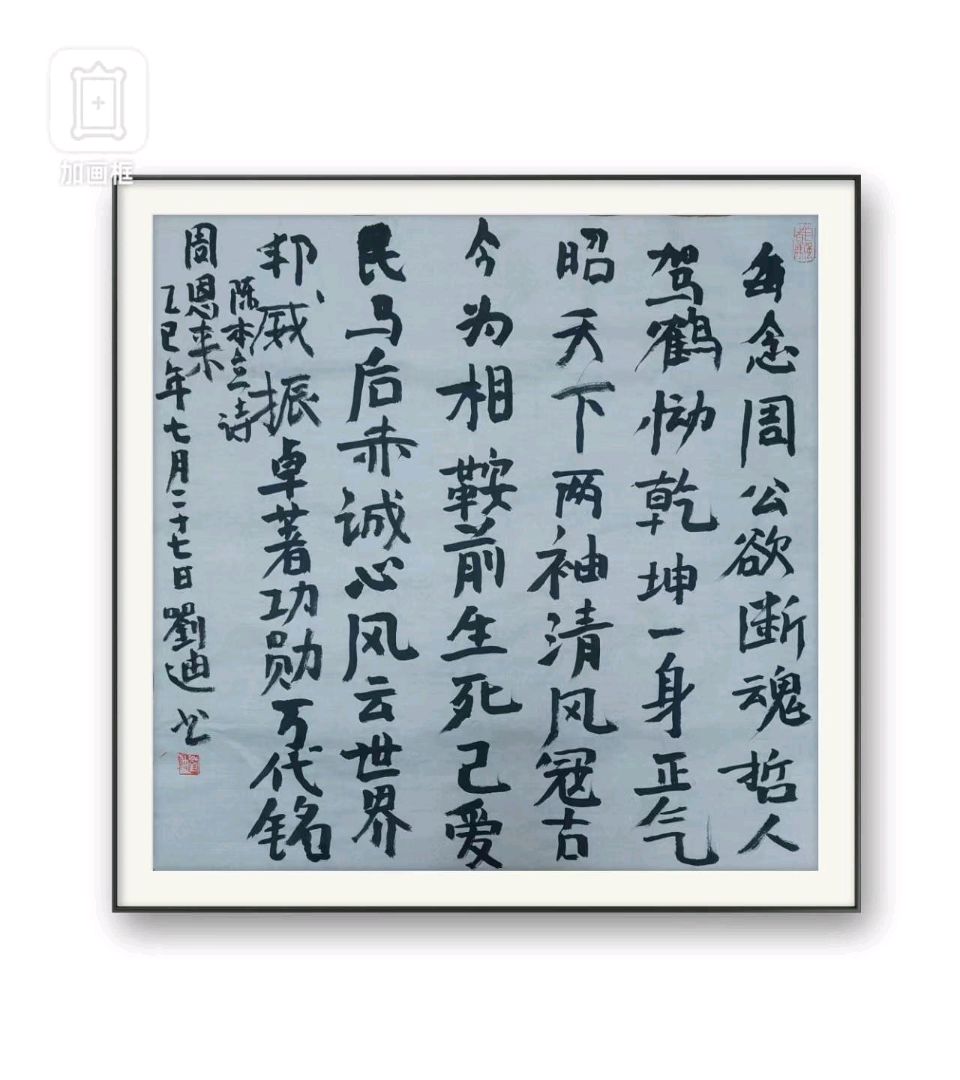 加画框
每念周公欲断魂哲人
驾鹤恸乾坤一身正气
昭天下两袖清风冠古
今为相鞍前生死已爱
民马后赤诚心风云世界
邦威振卓著功勋万代铭
陈本立诗
周恩来
乙巳年七月二十七日劉迪书